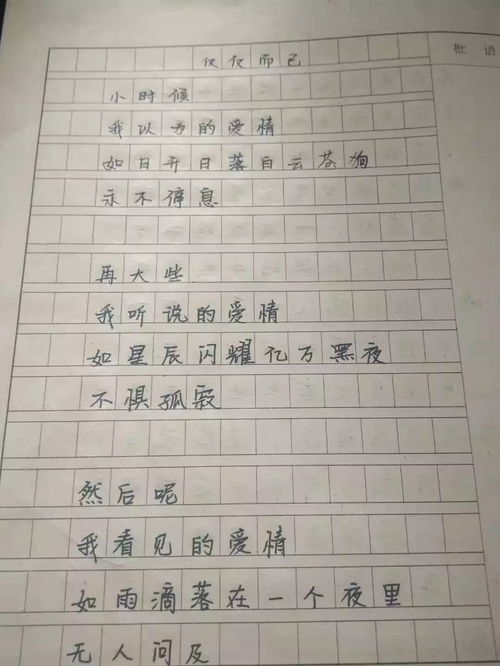 批语
仅仅而已
小时候
我以为的爱情
如日升日落白云苍狗
永不停息
再大些
我听说的爱情
如星辰闪耀亿万黑夜
不惧孤寂
然后呢
我看见的爱情
如雨滴落在一个夜里
无人问及